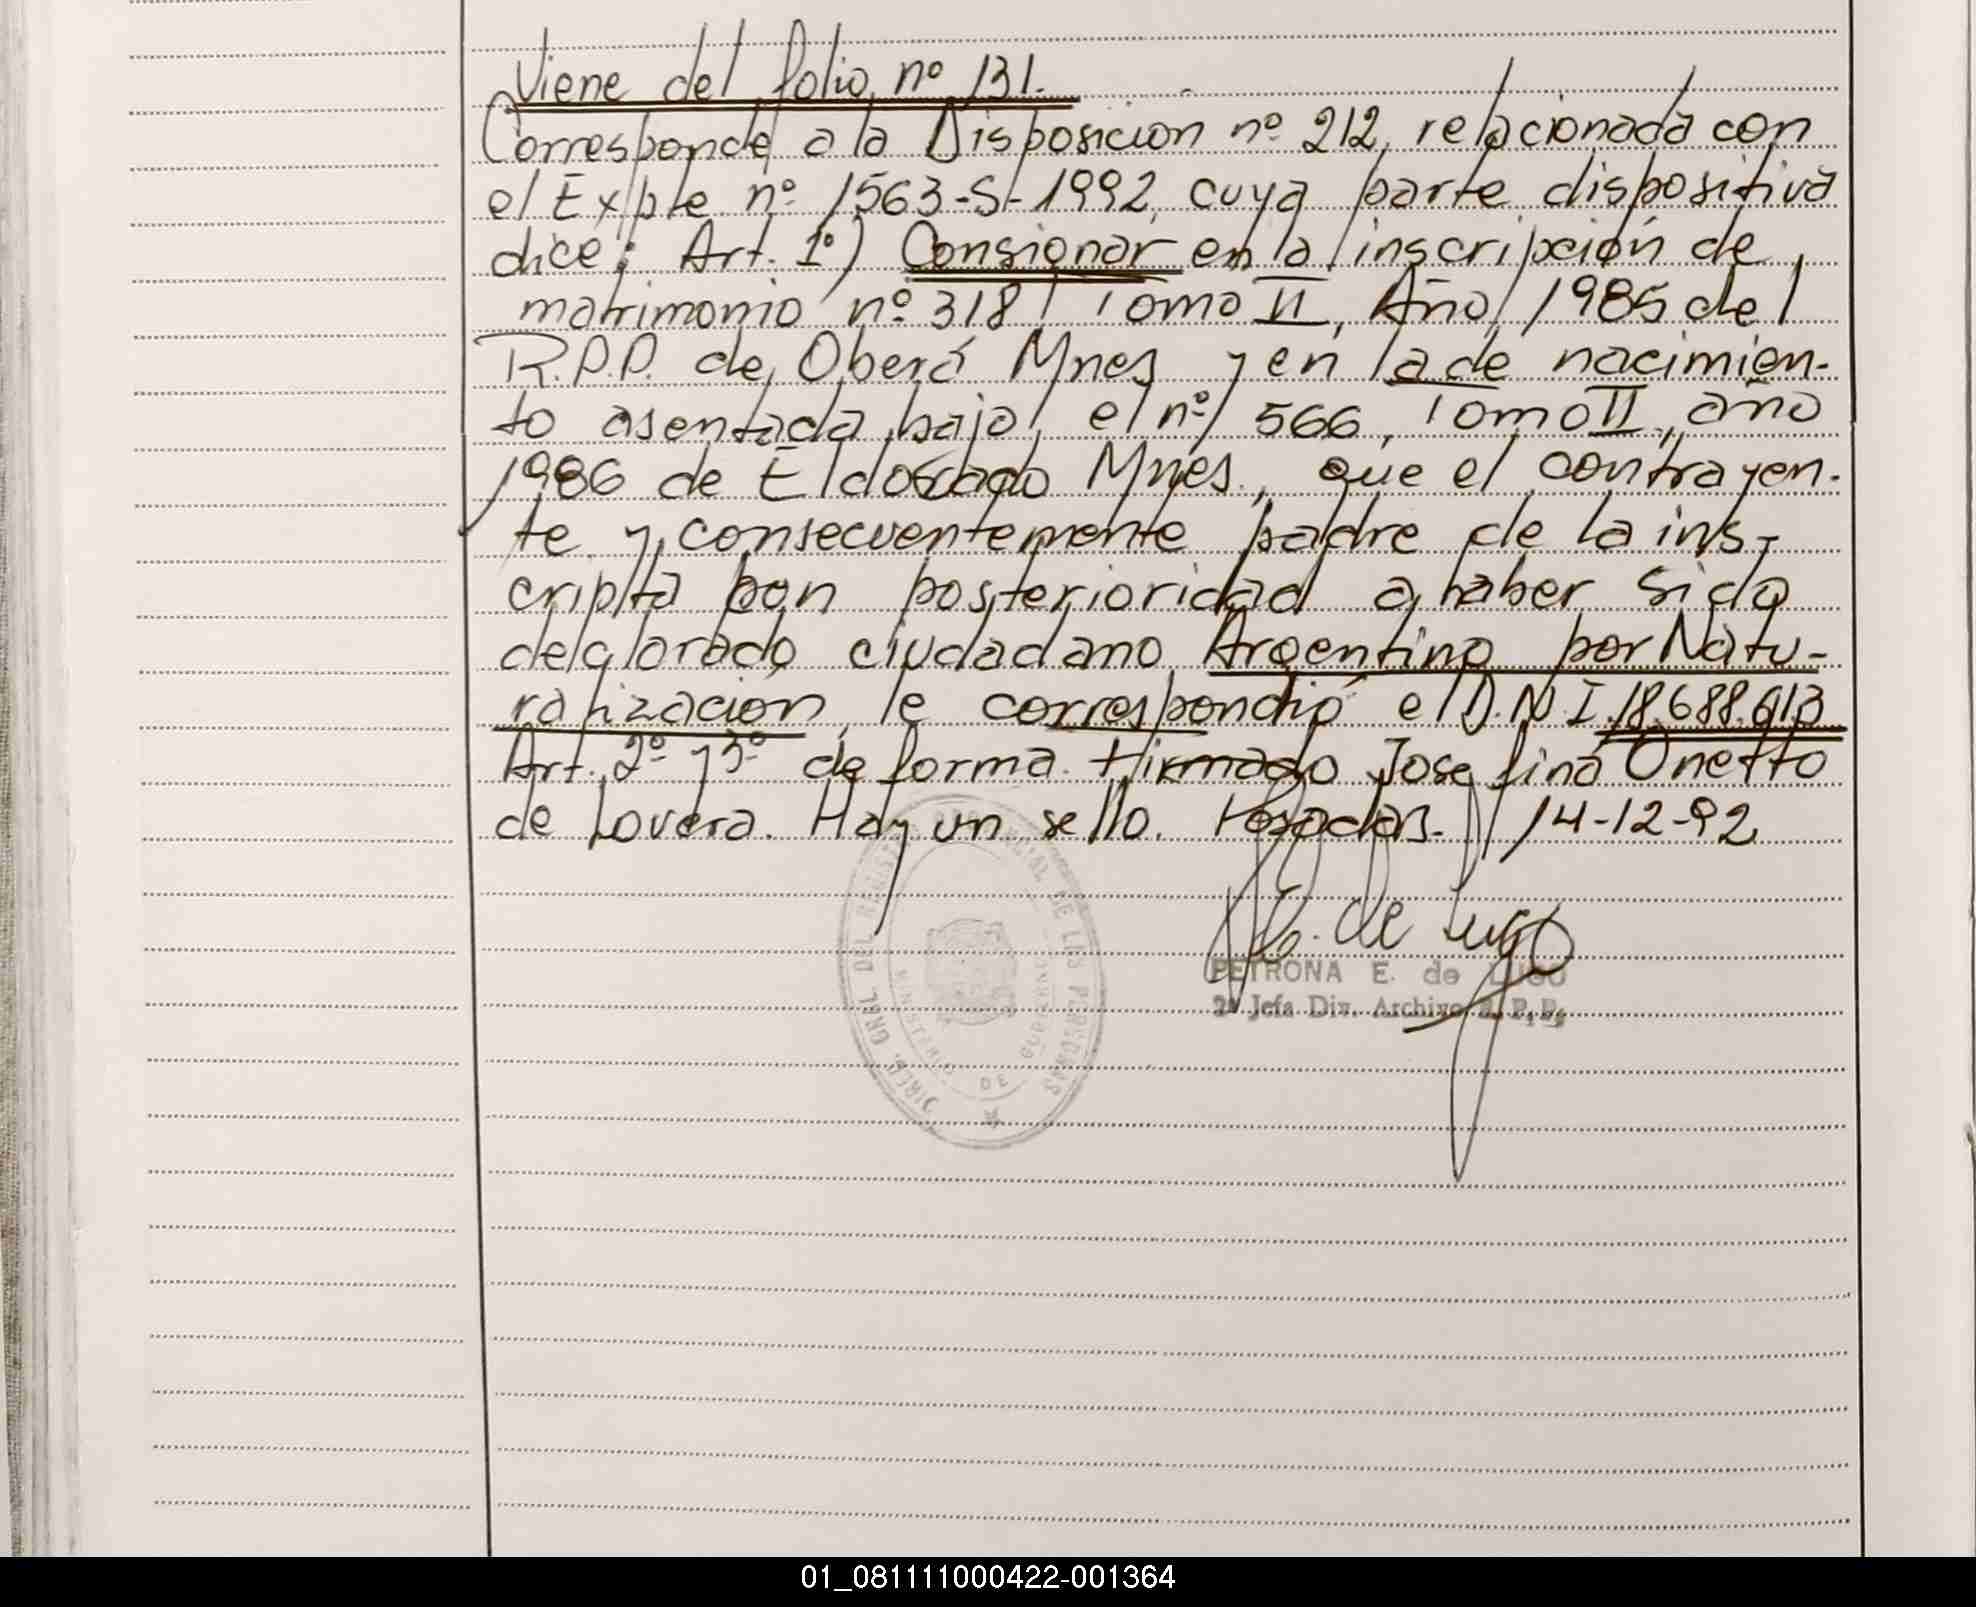 Viene del folio nº 131.
Corresponde a la Disposicion nº 212, relacionada con
el Expte. nº 1563-S-1992, cuya parte dispositiva
dice: Art. 1º) Consignar en la inscripción de
matrimonio nº 318 Tomo II, Año 1985 del
R.P.P. de Oberá Mnes y en la de nacimien-
to asentada bajo el nº 566, Tomo II, año
1986 de Eldorado Mnes., que el contrayen-
te y consecuentemente padre de la ins-
cripta con posterioridad a haber sido
declarado ciudadano Argentino por Natu-
ralización, le correspondió el D.N.I. 18.688.913
Art. 2º y 3º de forma. Firmado Josefina Onetto
de Lovera. Hay un sello. Posadas. 14-12-92
E. de Lugo
PETRONA E. de LUGO
2ª Jefa Div. Archivo R. P. P.
DIREC. GRAL. DEL REGISTRO PROVINCIAL DE LAS PERSONAS
MINISTERIO DE GOBIERNO
01_081111000422-001364